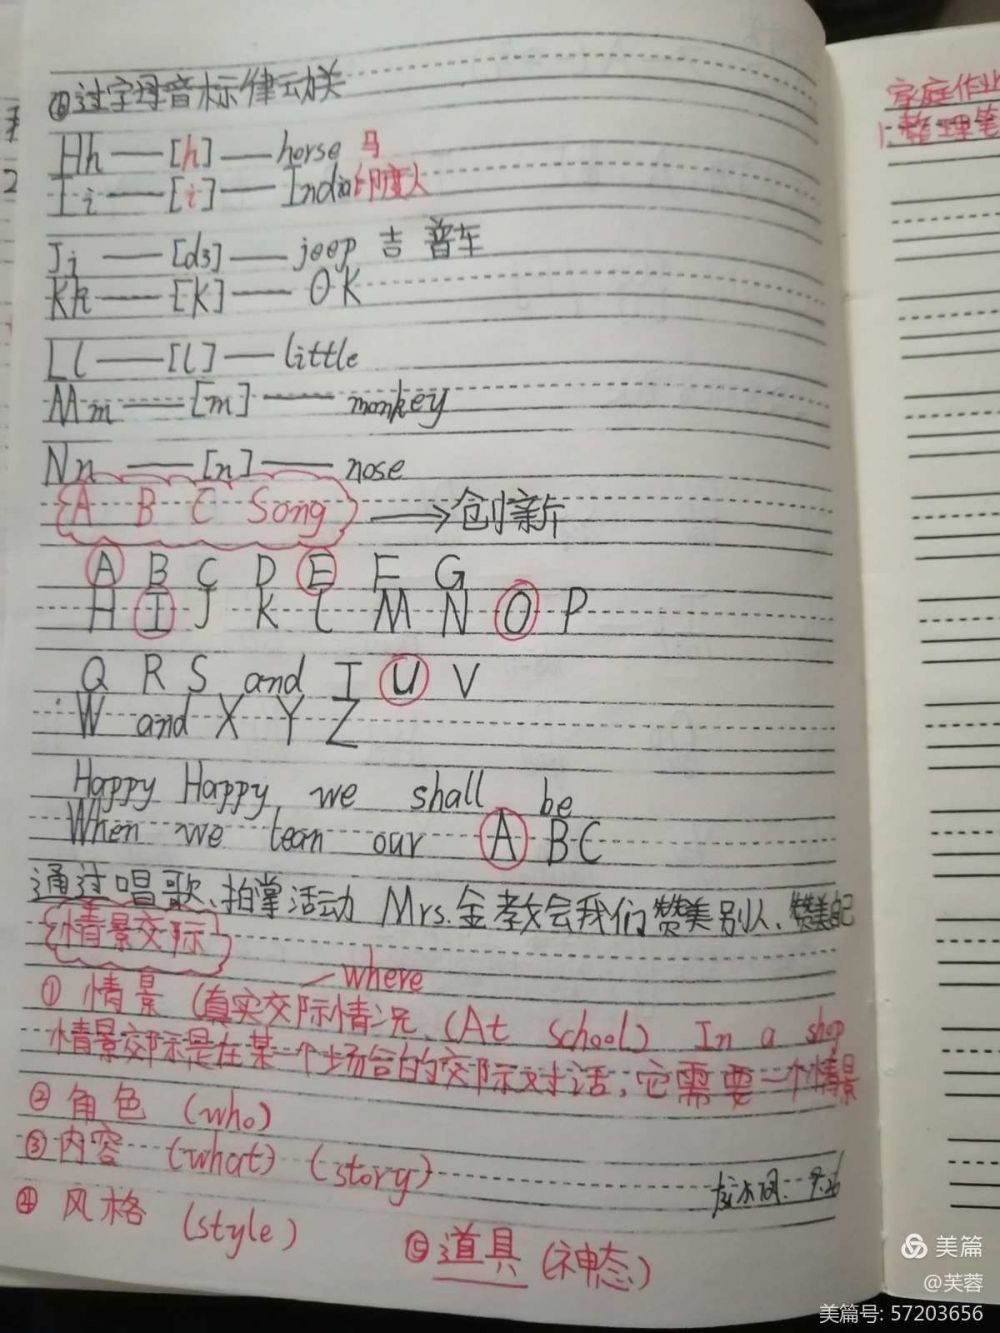 ⑥过字母音标律动关
Hh — [h] — horse 马
Ii — [i] — Indian 印度人
Jj — [dʒ] — jeep 吉普车
Kk — [k] — OK
Ll — [l] — little
Mm — [m] — monkey
Nn — [n] — nose
A B C Song → 创新
A B C D E F G
H I J K L M N O P
Q R S and T U V
W and X Y Z
Happy Happy we shall be
When we learn our A B C
通过唱歌、拍掌活动 Mrs.金教会我们赞美别人、赞美自己
情景交际
where
① 情景 (真实交际情况、(At school) In a shop
情景交际是在某一个场合的交际对话,它需要一个情景
② 角色 (who)
③ 内容 (what) (story)
④ 风格 (style)
⑤ 道具 (神态)
9.26
家庭作业
1.整理笔
美篇
@芙蓉
美篇号: 57203656